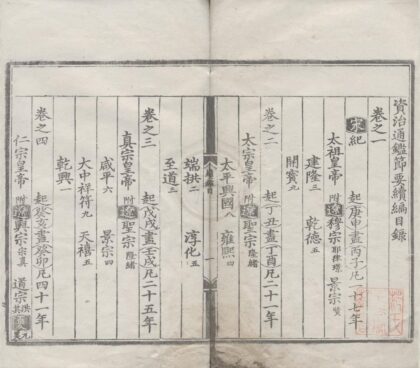 資治通鑑節要續編目錄
卷之一
宋紀 起庚申盡丙子凡一十七年
太祖皇帝 附遼穆宗耶律璟景宗賢
建隆三 乾德五
開寶九
卷之二 起丁丑盡丁酉凡二十一年
太宗皇帝 附遼聖宗隆緒
太平興國八 雍熙四
端拱二 淳化五
至道三
卷之三 起戊戌盡壬戌凡二十五年
真宗皇帝 附遼聖宗隆緒
咸平六 景宗四
大中祥符九 天禧五
乾興一
卷之四 起癸亥盡癸卯凡四十一年
仁宗皇帝 附遼興宗宗真道宗洪基